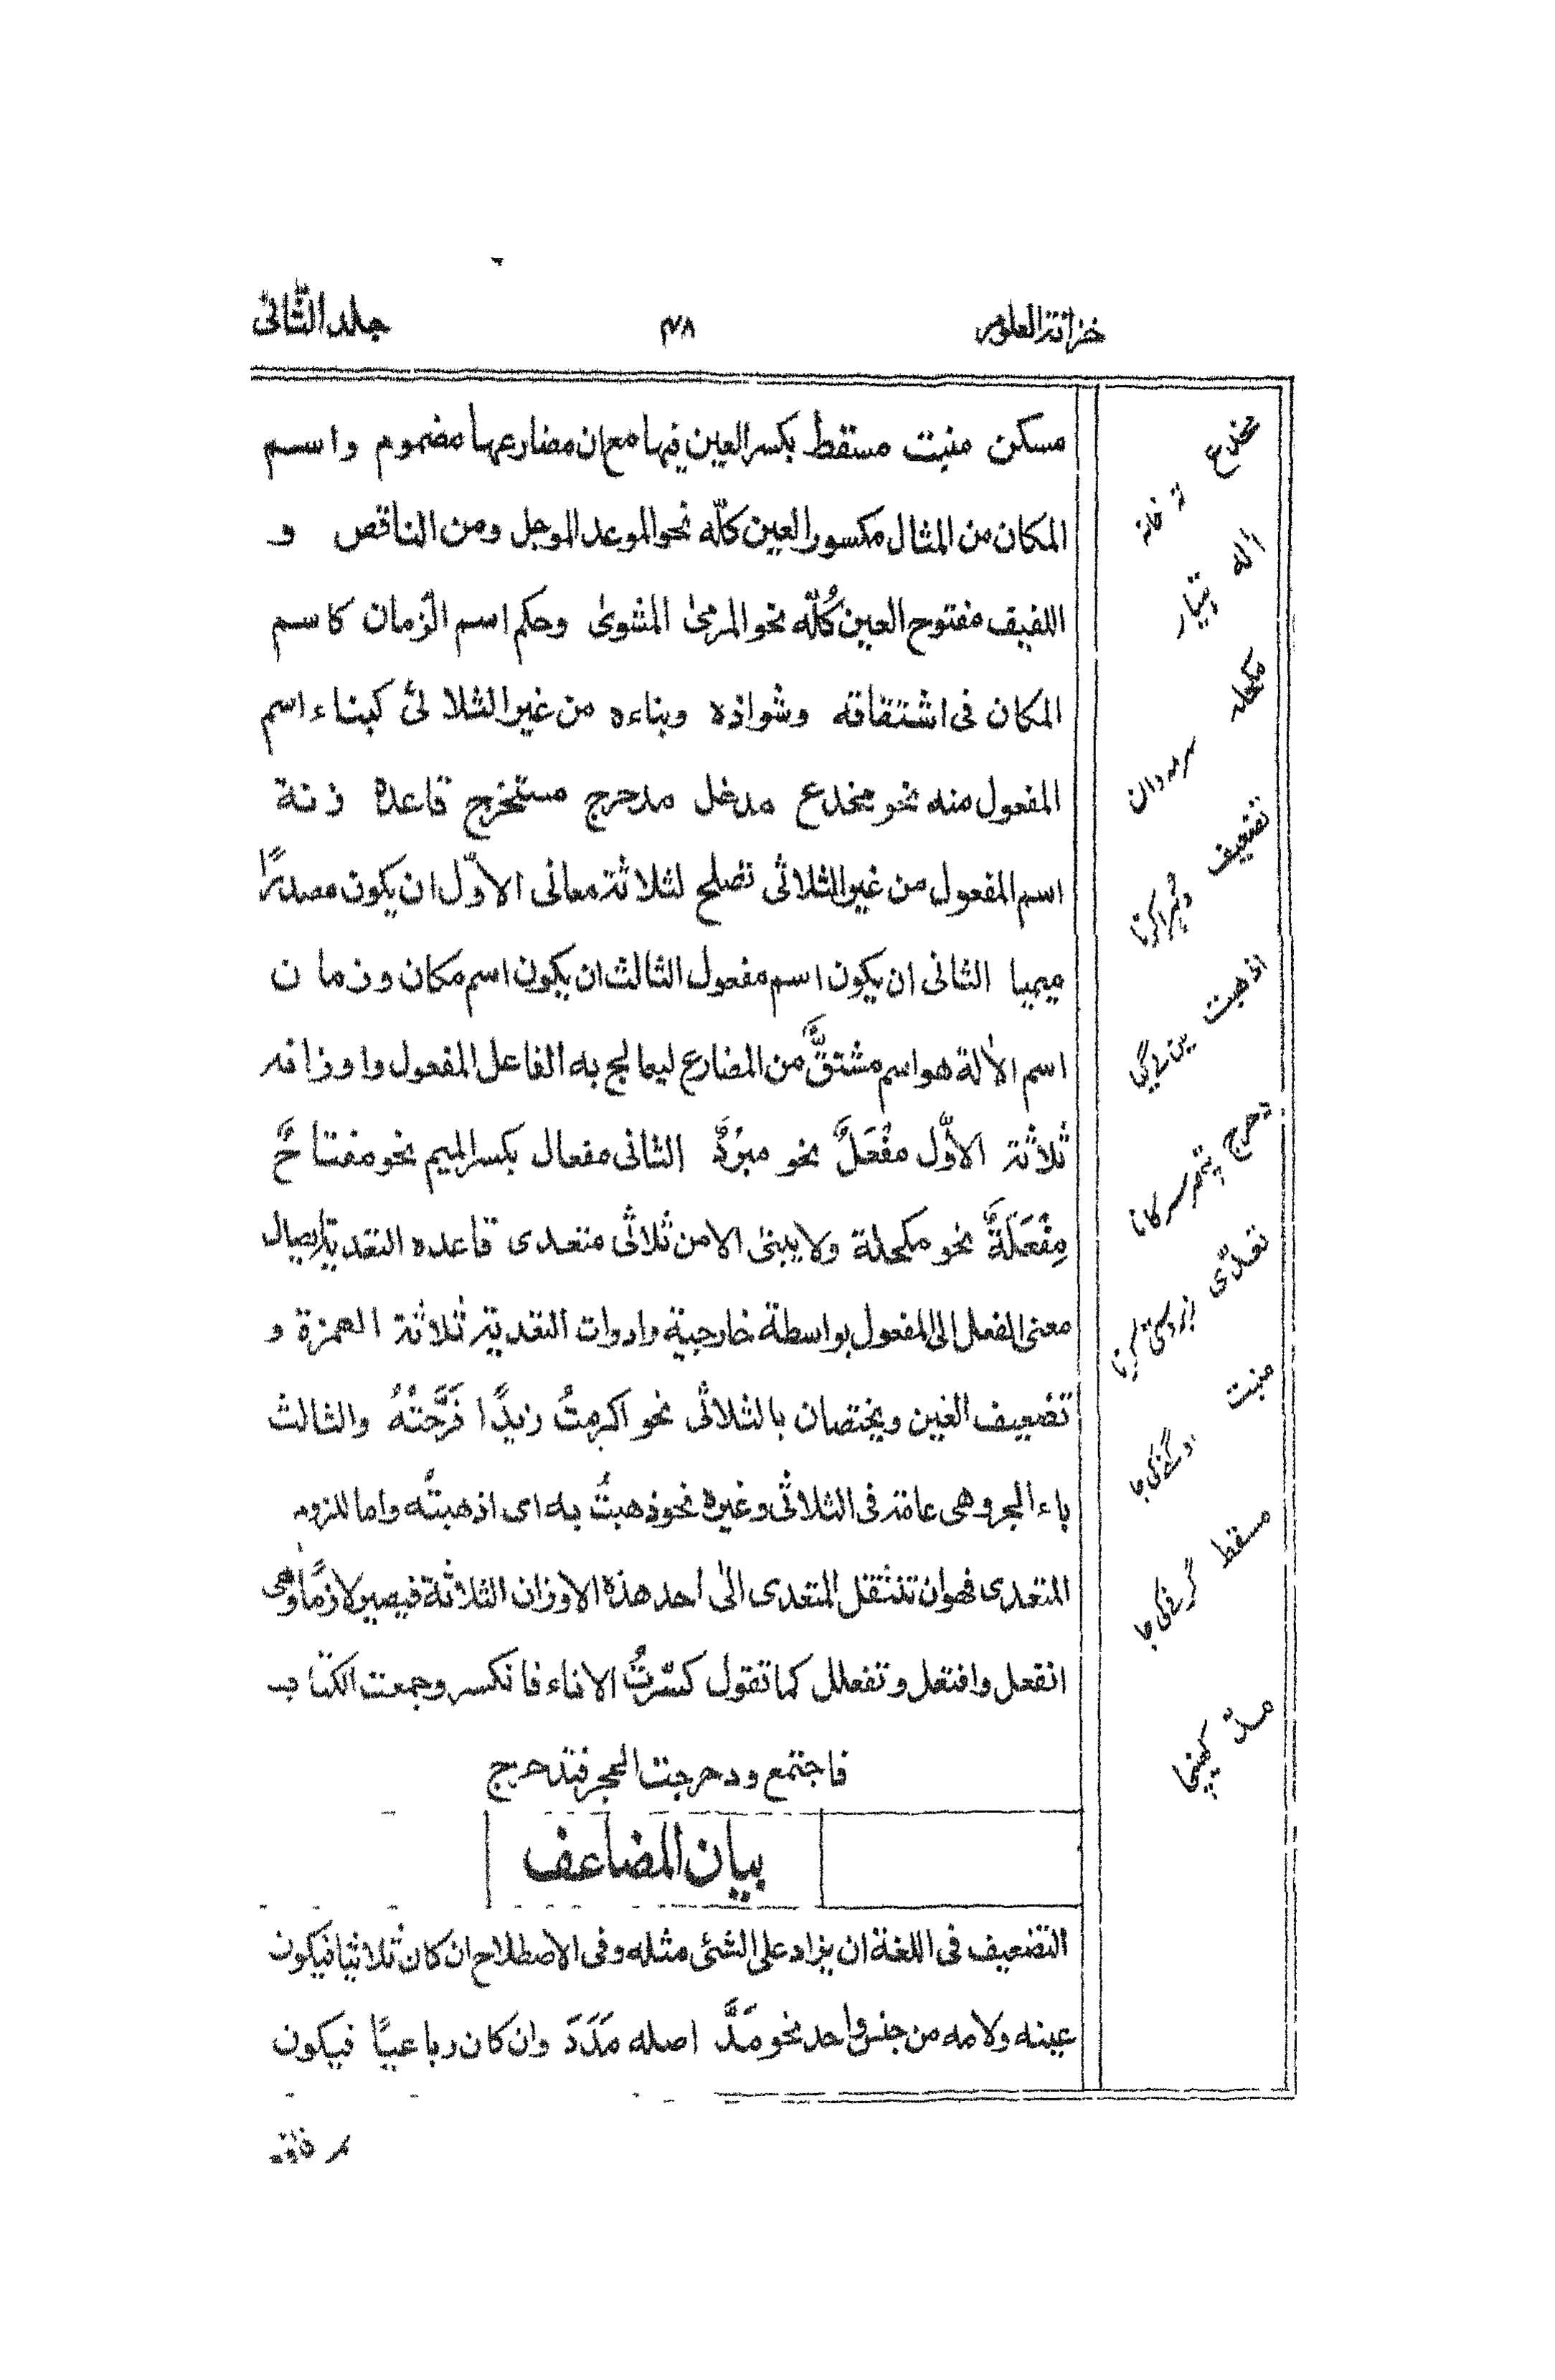 خزانة العلوم
۴۸
جلد الثانی
مسکن منبت مسقط بکسر العین فیها مع ان مضارعها مضموم واسم
المکان من المثال مکسور العین کلّه نحو الموعد الموجل ومن الناقص و
اللفیف مفتوح العین کُلّه نحو المرمیٰ المثویٰ وحکم اسم الزّمان کاسم
المکان فی اشتقاقه وشواذه وبناءه من غیر الثلاثی کبناء اسم
المفعول منه نحو مخدع مدخل مدحرج مستخرج قاعدة زنة
اسم المفعول من غیر الثلاثی تصلح لثلاثة معانی الاوّل ان یکون مصدرًا
میمیا الثانی ان یکون اسم مفعول الثالث ان یکون اسم مکان وزمان
اسم الاٰلة هو اسم مشتقٌّ من المضارع لیعالج به الفاعل المفعول واوزانه
ثلاثة الاوّل مفْعَلٌ نحو مبرَدٌ الثانی مفعال بکسر المیم نحو مفتاحٌ
مِفْعَلَةٌ نحو مکحلة ولا یبنیٰ الا من ثلاثی متعدی قاعده التعدیة ایصال
معنی الفعل الی المفعول بواسطة خارجیة وادوات التعدیة ثلاثة الهمزة و
تضعیف العین ویختصان بالثلاثی نحو اکرمتُ زیدًا فَرَّحْتُهُ والثالث
باء الجر وهی عامة فی الثلاثی وغیره نحو ذهبتُ به ای اذهبتُه واما لزوم
المتعدی فهو ان تنتقل المتعدی الیٰ احد هذه الاوزان الثلاثة فیصیر لازمًا وهی
انفعل وافتعل وتفعلل کما تقول کسّرتُ الاناء فانکسر وجمعت الکتاب
فاجتمع ودحرجت الحجر فتدحرج
بیان المضاعف
التضعیف فی اللغة ان یزاد علی الشئ مثله وفی الاصطلاح ان کان ثلاثیا فیکون
عینه ولامه من جنس واحد نحو مَدَّ اصله مَدَدَ وان کان رباعیًا فیکون
مخدع
خانه
اٰله
مکحله
سرمه دان
تضعیف
دُهرا کرنا
اذهبت
تدحرج
پتھر سرکانا
تعدّی
منبت
اوگنے کی جا
مسقط
گرنے کی جا
مدّ
کھینچا